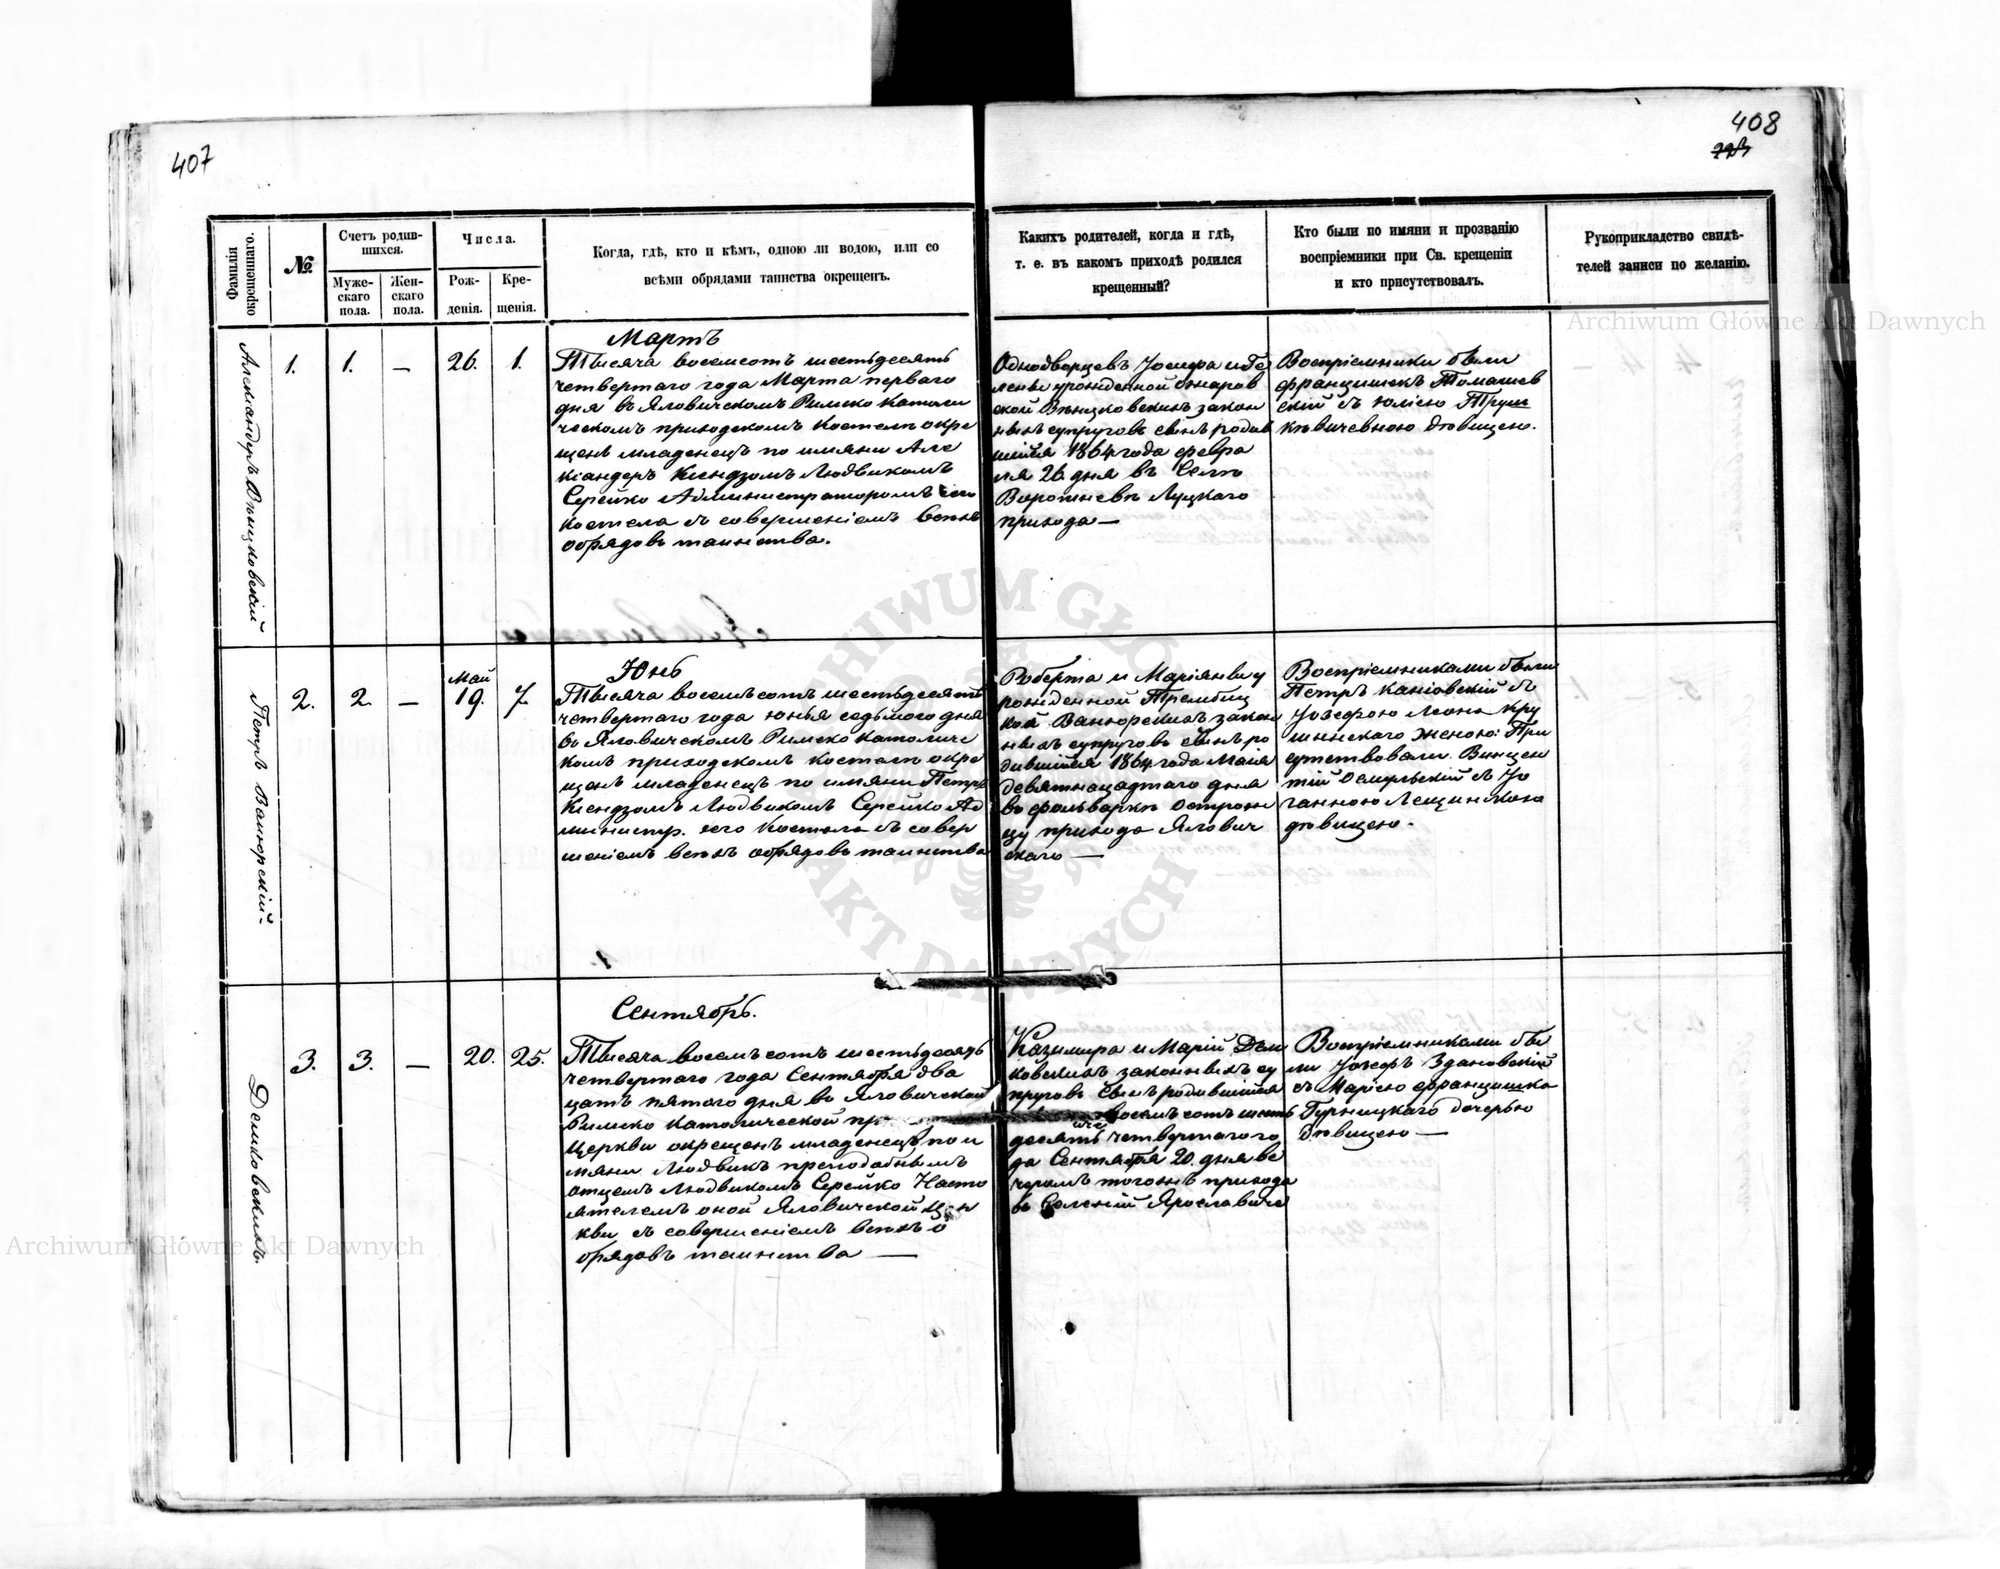 407
408
Фамилія
окрещеннаго.
№.
Счетъ родив-
шихся.
Муже-
скаго
пола.
Жен-
скаго
пола.
Числа.
Рож-
денія.
Кре-
щенія.
Когда, гдѣ, кто и кѣмъ, одною ли водою, или со
всѣми обрядами таинства окрещенъ.
Какихъ родителей, когда и гдѣ,
т. е. въ какомъ приходѣ родился
крещенный?
Кто были по имяни и прозванію
воспріемники при Св. крещеніи
и кто присутствовалъ.
Рукоприкладство свидѣ-
телей записи по желанію.
Александръ Вѣнцковскій
1.
1.
—
26.
1.
Мартъ
Тысяча восемсотъ шестьдесятъ
четвертаго года Марта перваго
дня въ Яловичскомъ Римско Католи
ческомъ приходскомъ костелѣ окре
щенъ младенецъ по имяни Але
ксандеръ Ксендзомъ Людвикомъ
Серейко Администраторомъ сего
костела съ совершеніемъ всѣхъ
обрядовъ таинства.
Однодворцевъ Іосифа и Ге
лены урожденной
ской Вѣнцковскихъ закон
ныхъ супруговъ сынъ родив
шійся 1864 года февра
ля 26 дня въ Селѣ
Воротневѣ Луцкаго
прихода —
Воспріемники были
францишекъ Томашев
скій съ Юліею Труш
кѣвичевною дѣвицею.
Петръ Ванюрскій
2.
2.
—
Май
19.
7.
Юнь
Тысяча восемьсотъ шестьдесятъ
четвертаго года юнья седьмого дня
въ Яловичскомъ Римско католичс
комъ приходскомъ костелѣ окре
щенъ младенецъ по имяни Петръ
Ксендзомъ Людвикомъ Серейко Ад
министр. сего Костела съ совер
шеніемъ всѣхъ обрядовъ таинства
Роберта и Маріянны у
рожденной Трембиц
кой Ванюрскихъ закон
ныхъ супруговъ сынъ ро
дившійся 1864 года Маія
девятнацадтаго дня
въ фольваркѣ Острожи
цу прихода Ялович
скаго —
Воспріемниками были
Петръ Каніовскій съ
Іозефою Леона Кру
шинскаго женою: При
сутствовали Винцен
тій Осмульскій съ Іо
ганною Лещинскою
дѣвицею.
Демковскихъ.
3.
3.
—
20.
25.
Сентябрь.
Тысяча восемьсотъ шестьдесятъ
четвертаго года Сентября два
цать пятого дня въ Яловичской
Римско Католической
Церкви окрещенъ младенецъ по и
мяни Людвикъ преподобнымъ
отцемъ Людвикомъ Серейко Насто
ятелемъ оной Яловичской цер
кви съ совершеніемъ всѣхъ о
брядовъ таинства —
Казимира и Марій Дем
ковскихъ законныхъ су
пруговъ сынъ родившійся
восемьсотъ шесть
десятъ четвертаго го
да Сентября 20. дня ве
черомъ тогожъ прихода
въ Селеній Ярославичи
Воспріемниками бы
ли Іозефъ Здановскій
съ Маріею францишка
Гурницкаго дочерью
дѣвицею —
Archiwum Główne Akt Dawnych
Archiwum Główne Akt Dawnych
ARCHIWUM GŁÓWNE AKT DAWNYCH